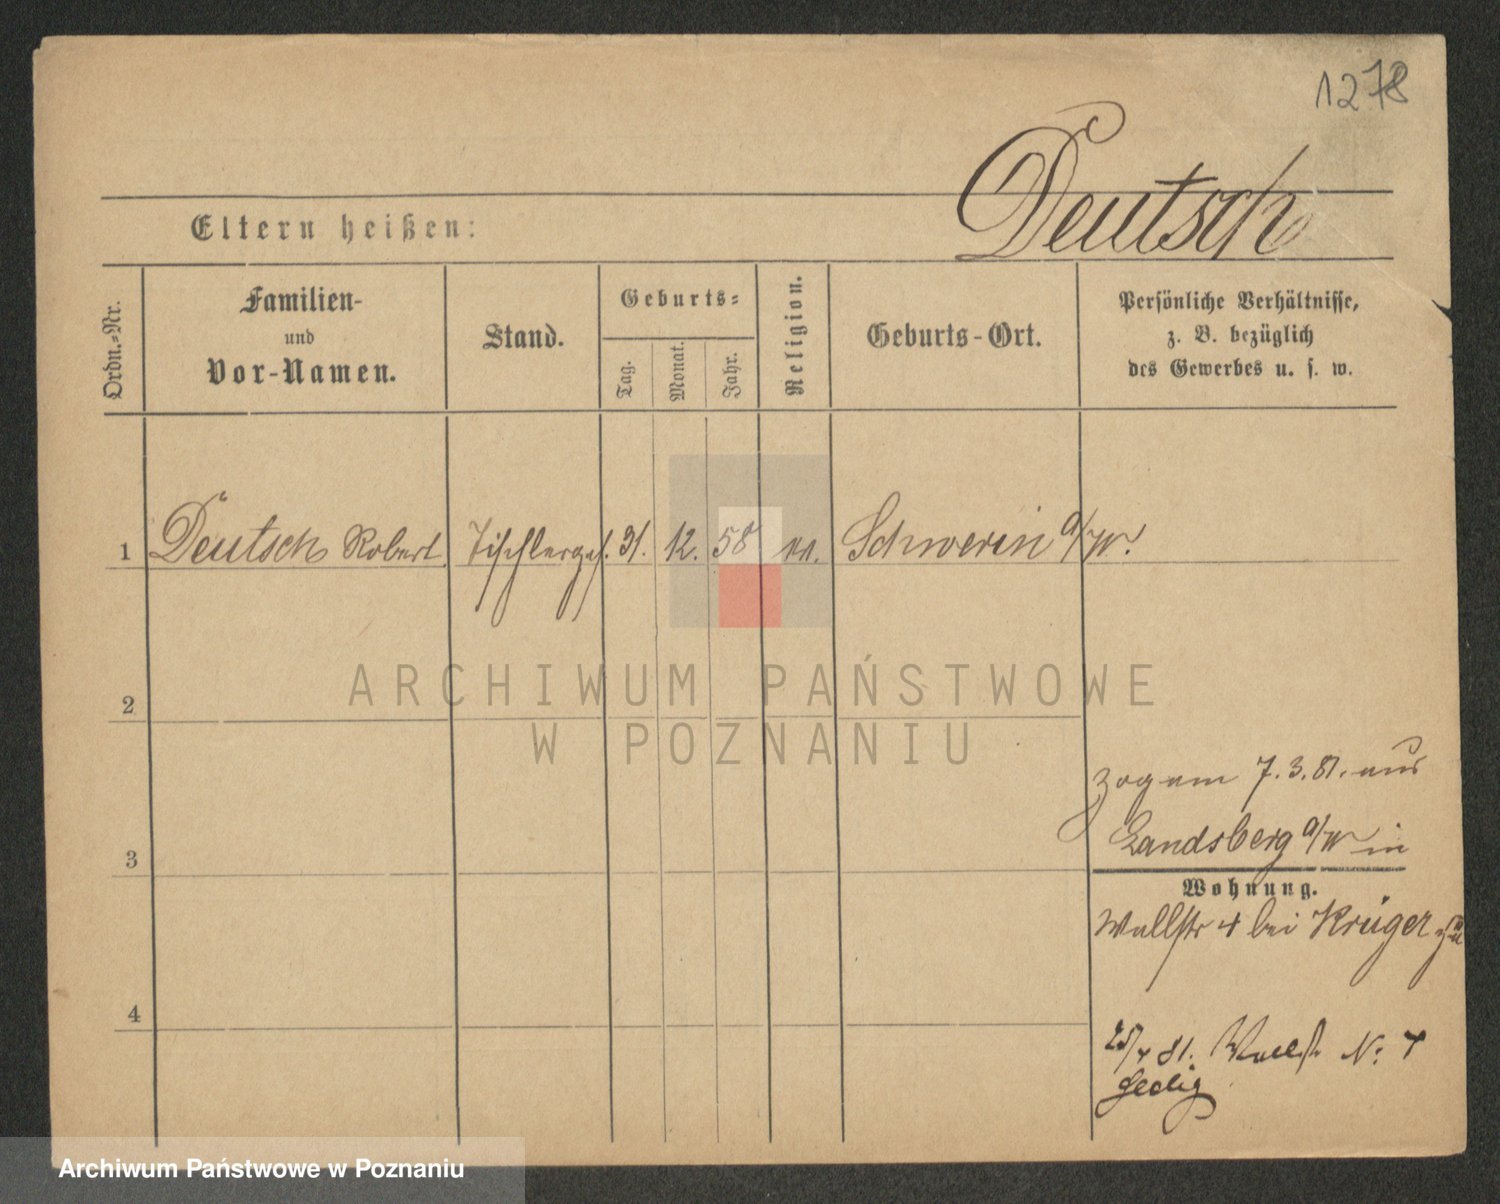 1278
Deutsch
Eltern heißen:
Ordn.-Nr.
Familien-
und
Vor-Namen.
Stand.
Geburts-
Tag.
Monat.
Jahr.
Religion.
Geburts-Ort.
Persönliche Verhältnisse,
z. B. bezüglich
des Gewerbes u. s. w.
1 Deutsch Robert Tischlerges. 31. 12. 58 Schwerin a/W.
2
3
4
ARCHIWUM PAŃSTWOWE
W POZNANIU
zog am 7.3.81. aus
Landsberg a/W in
Wohnung.
Wallstr 4 bei Krüger zu
81. Wallst No 4
Archiwum Państwowe w Poznaniu